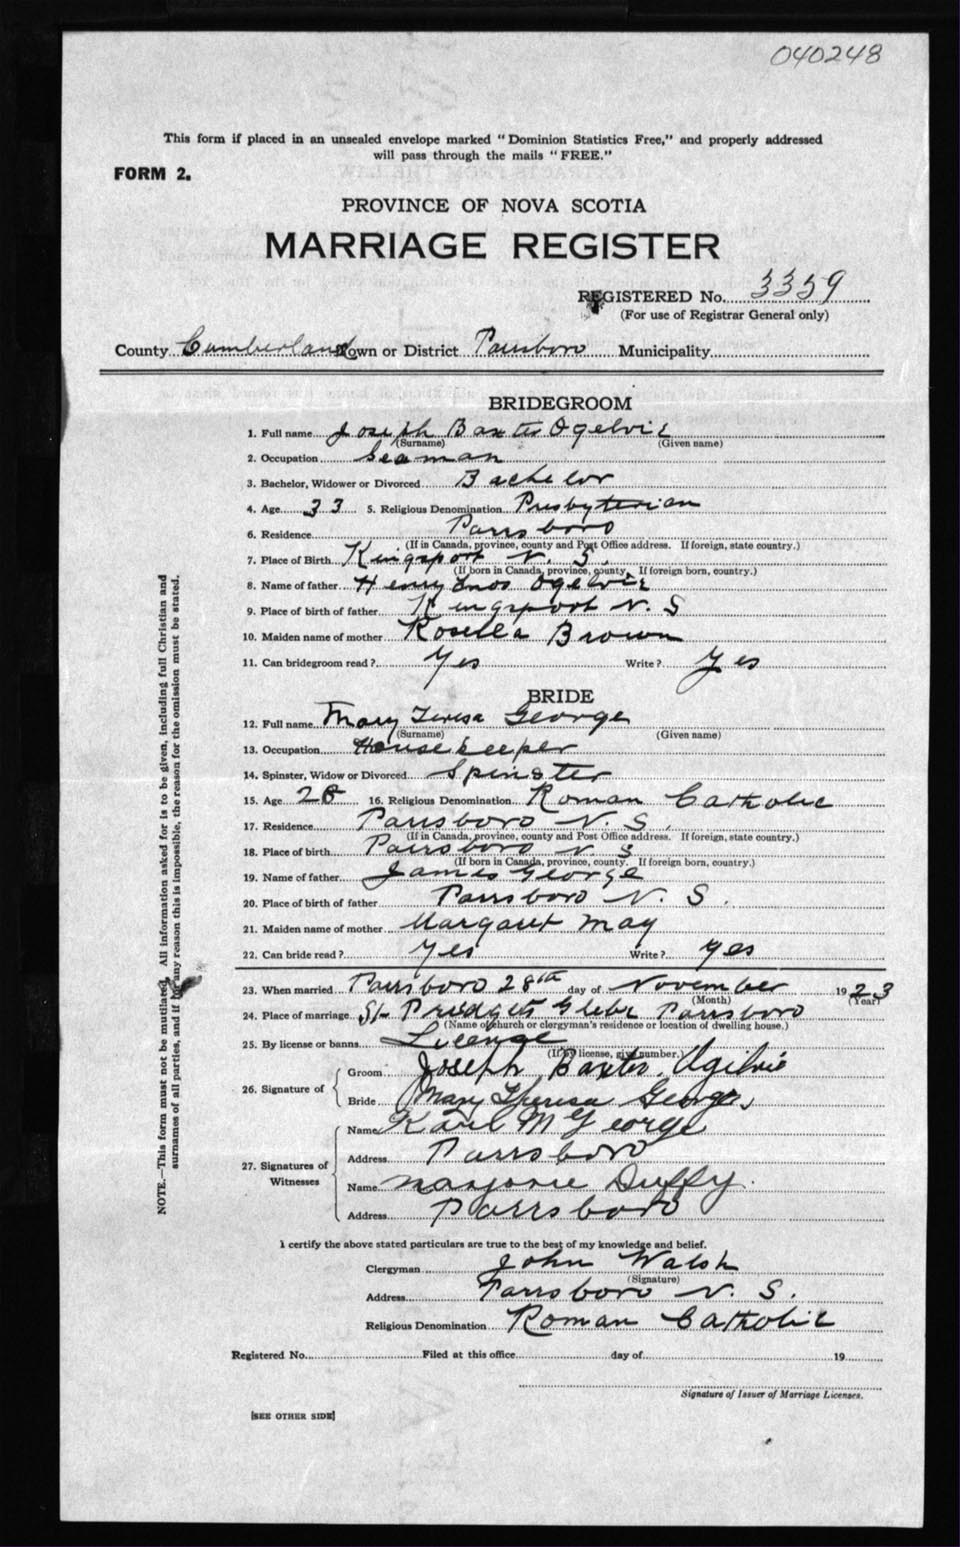 040248
This form if placed in an unsealed envelope marked "Dominion Statistics Free," and properly addressed
will pass through the mails "FREE."
FORM 2.
PROVINCE OF NOVA SCOTIA
MARRIAGE REGISTER
REGISTERED No. 3359
(For use of Registrar General only)
County Cumberland Town or District Parrsboro Municipality
BRIDEGROOM
1. Full name Joseph Baxter Ogelvie
(Surname) (Given name)
2. Occupation Seaman
3. Bachelor, Widower or Divorced Bachelor
4. Age 33 5. Religious Denomination Presbyterian
6. Residence Parrsboro
(If in Canada, province, county and Post Office address. If foreign, state country.)
7. Place of Birth Kingsport N. S.
(If born in Canada, province, county. If foreign born, country.)
8. Name of father Henry Enos Ogelvie
9. Place of birth of father Kingsport N. S
10. Maiden name of mother Rosella Brown
11. Can bridegroom read? Yes Write? Yes
BRIDE
12. Full name Mary Teresa George
(Surname) (Given name)
13. Occupation Housekeeper
14. Spinster, Widow or Divorced Spinster
15. Age 28 16. Religious Denomination Roman Catholic
17. Residence Parrsboro N. S.
(If in Canada, province, county and Post Office address. If foreign, state country.)
18. Place of birth Parrsboro N. S
(If born in Canada, province, county. If foreign born, country.)
19. Name of father James George
20. Place of birth of father Parrsboro N. S.
21. Maiden name of mother Margaret May
22. Can bride read? Yes Write? Yes
23. When married Parrsboro 28th day of November 1923
(Month) (Year)
24. Place of marriage St Glebe Parrsboro
(Name of church or clergyman's residence or location of dwelling house.)
25. By license or banns License
(If by license, give number.)
26. Signature of
Groom Joseph Baxter Ogilvie
Bride Mary Theresa George
27. Signatures of Witnesses
Name Karl M George
Address Parrsboro
Name Marjorie Duffy
Address Parrsboro
I certify the above stated particulars are true to the best of my knowledge and belief.
Clergyman John Walsh
(Signature)
Address Parrsboro N. S.
Religious Denomination Roman Catholic
Registered No. Filed at this office day of 19
Signature of Issuer of Marriage Licenses.
[SEE OTHER SIDE]
NOTE.—This form must not be mutilated. All information asked for is to be given, including full Christian and
surnames of all parties, and if for any reason this is impossible, the reason for the omission must be stated.